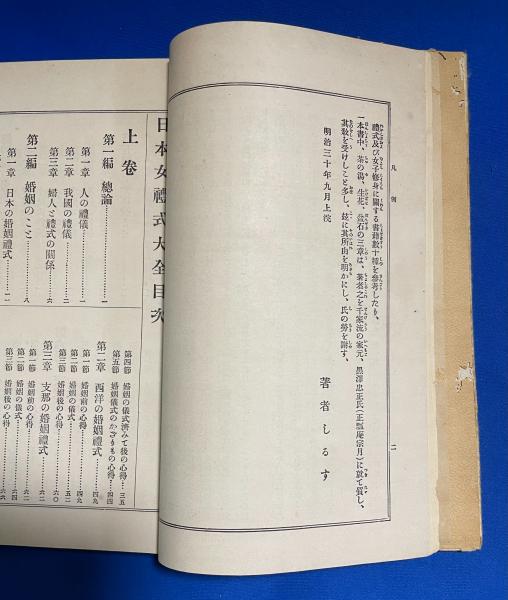 凡例
二
禮式及び女子修身に關する書籍數十種を參考したり、
一本書中、茶の湯、生花、盆石の三章は、著者之を千家流の家元、黑澤忠正氏(正瓢庵宗月)に就て質し、
其敎を受けしこと多し、玆に其所由を明かにし、氏の勞を謝す、
明治三十年九月上浣
著者しるす
日本女禮式大全目次
上卷
第一編 總論
第一章 人の禮儀………一
第二章 我國の禮儀………二
第三章 婦人と禮式の關係………六
第二編 婚姻のこと………八
第一章 日本の婚姻禮式………一一
第四節 婚姻の儀式濟みて後の心得…三五
第五節 婚姻儀式のかざりもの心得…四四
第二章 西洋の婚姻禮式………四九
第一節 婚姻前の心得………四九
第二節 婚姻の儀式………五二
第三節 婚姻後の心得………六〇
第三章 支那の婚姻禮式………六二
第一節 婚姻前の心得………六二
第二節 婚姻の儀式………六四
第三節 婚姻後の心得………六六